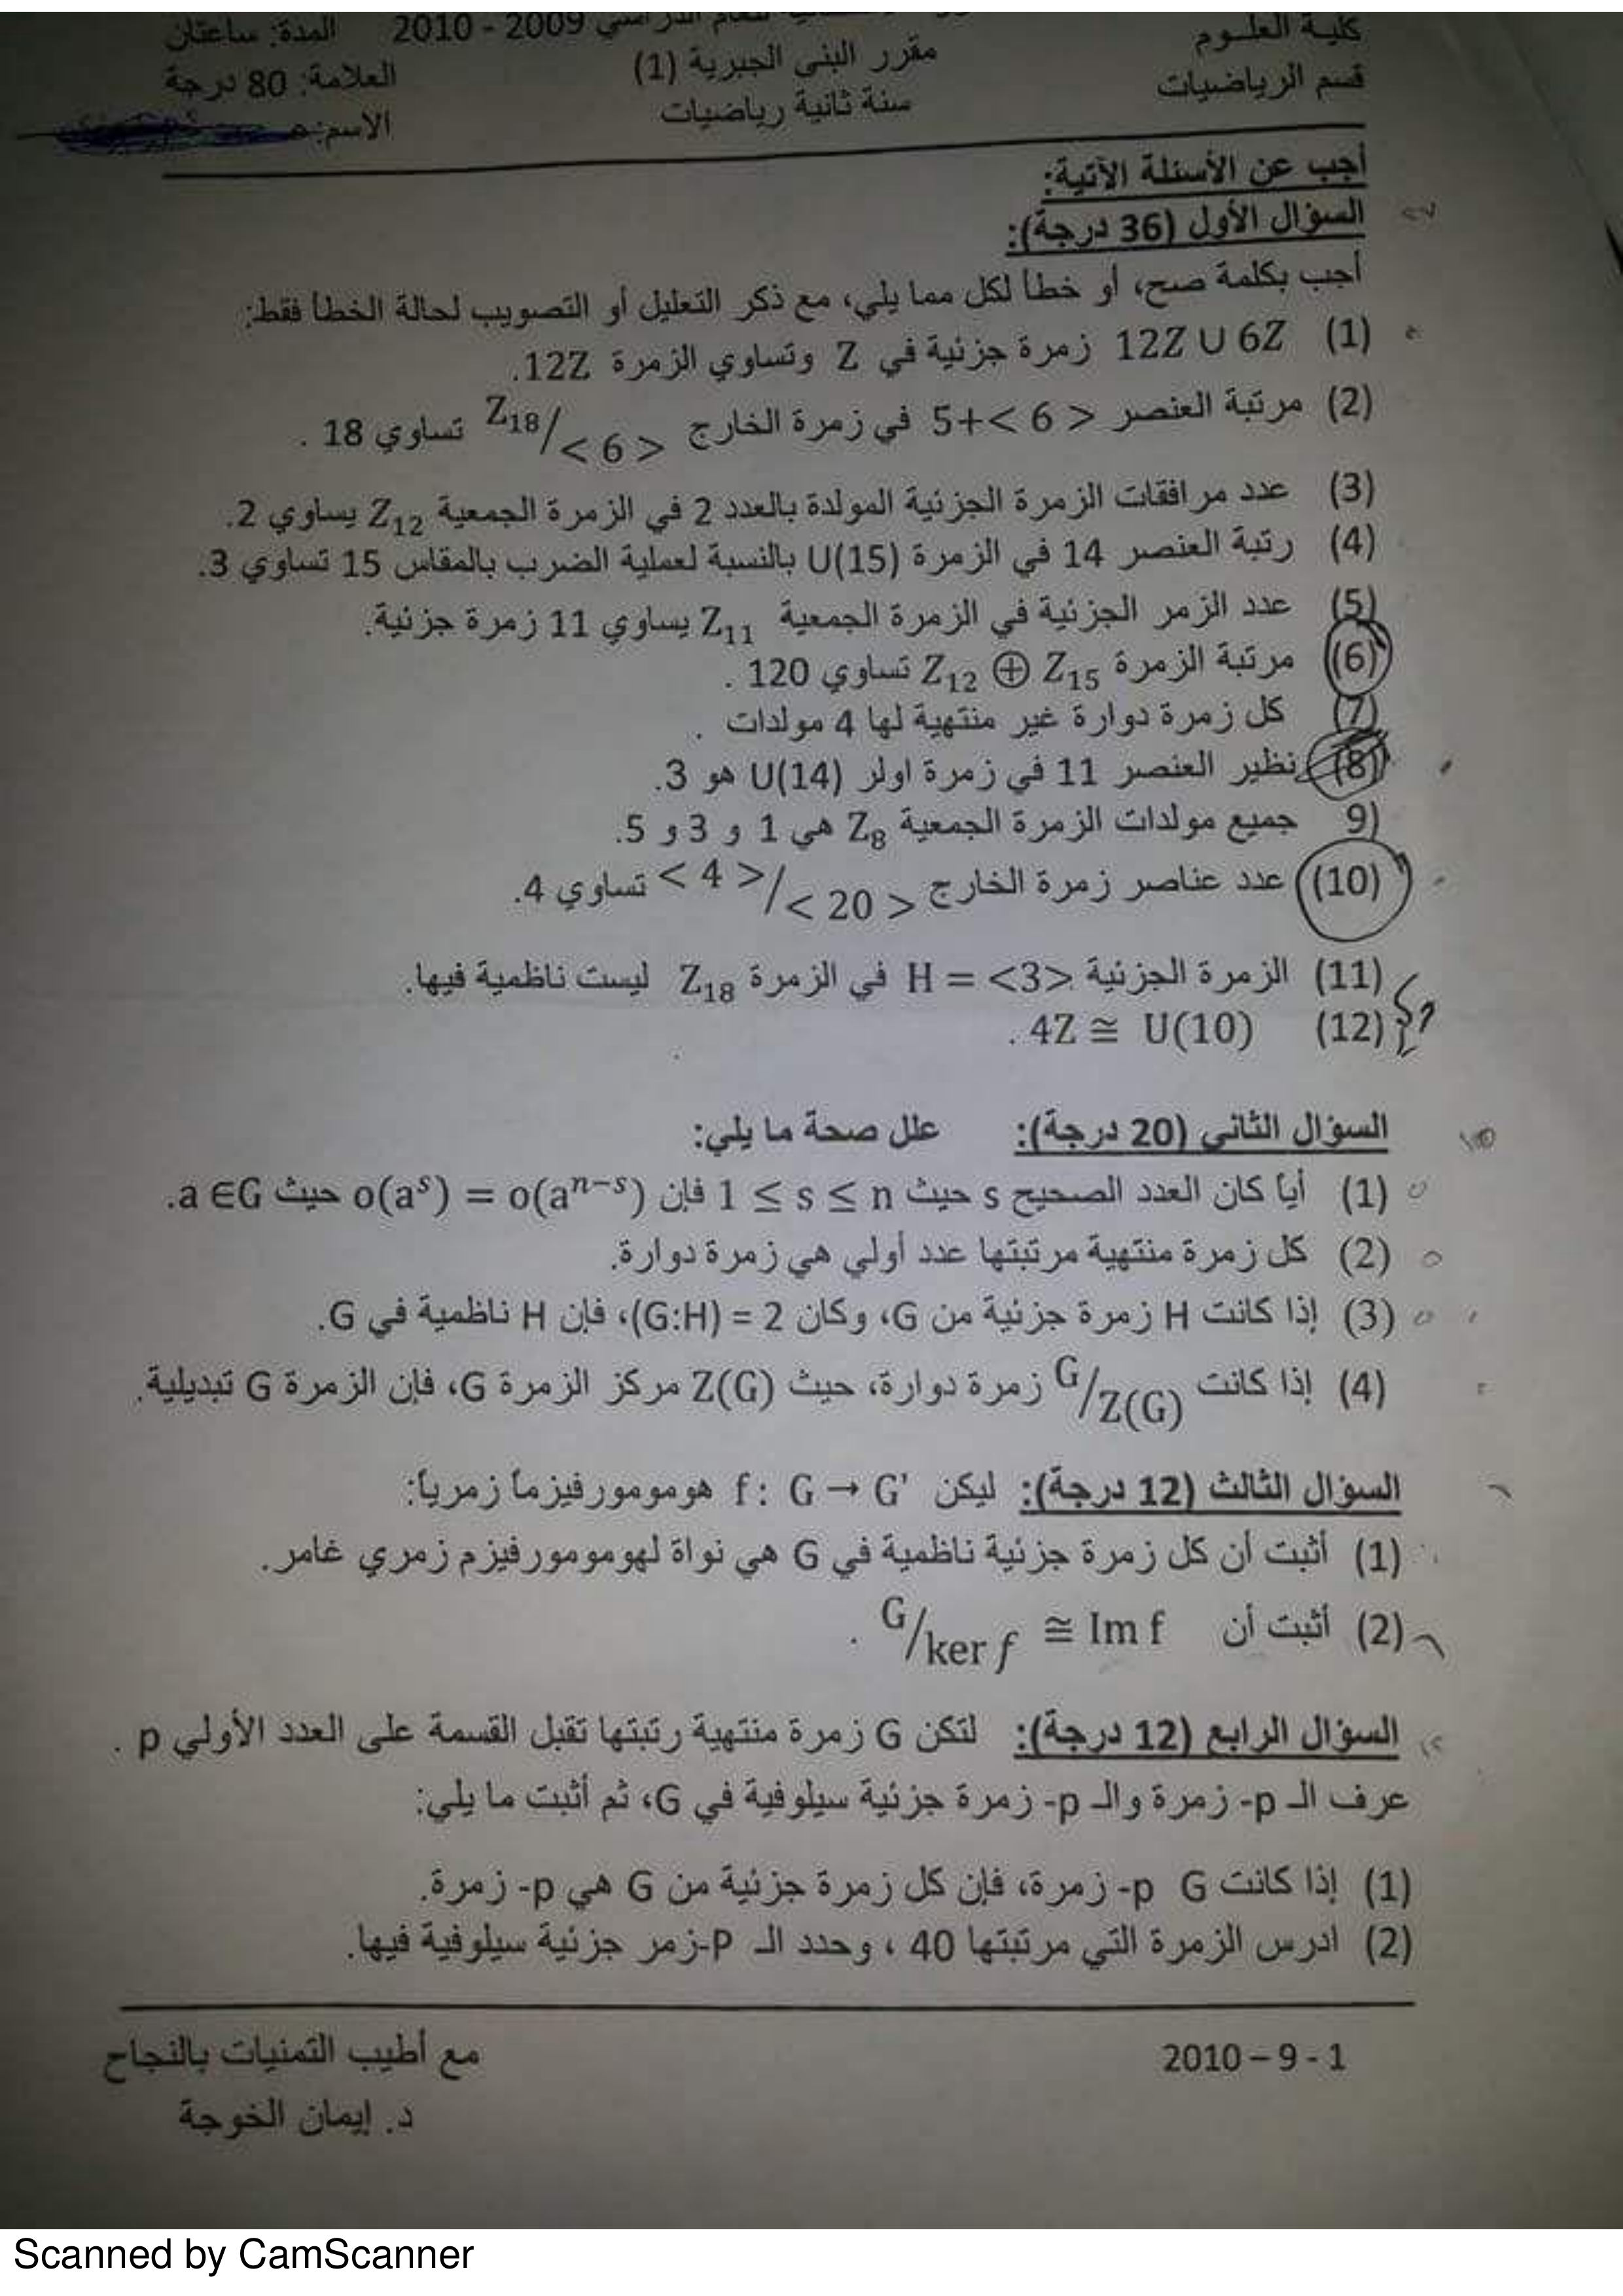 كلية العلوم
قسم الرياضيات
للعام الدراسي 2009 - 2010
مقرر البنى الجبرية (1)
سنة ثانية رياضيات
المدة: ساعتان
العلامة: 80 درجة
الاسم:
أجب عن الأسئلة الآتية:
السؤال الأول (36 درجة):
أجب بكلمة صح، أو خطأ لكل مما يلي، مع ذكر التعليل أو التصويب لحالة الخطأ فقط:
(1) 12Z ∪ 6Z زمرة جزئية في Z وتساوي الزمرة 12Z.
(2) مرتبة العنصر 5+< 6 > في زمرة الخارج Z₁₈/< 6 > تساوي 18 .
(3) عدد مرافقات الزمرة الجزئية المولدة بالعدد 2 في الزمرة الجمعية Z₁₂ يساوي 2.
(4) رتبة العنصر 14 في الزمرة U(15) بالنسبة لعملية الضرب بالمقاس 15 تساوي 3.
(5) عدد الزمر الجزئية في الزمرة الجمعية Z₁₁ يساوي 11 زمرة جزئية.
(6) مرتبة الزمرة Z₁₂ ⊕ Z₁₅ تساوي 120 .
(7) كل زمرة دوارة غير منتهية لها 4 مولدات .
(8) نظير العنصر 11 في زمرة اولر U(14) هو 3.
9) جميع مولدات الزمرة الجمعية Z₈ هي 1 و 3 و 5.
(10) عدد عناصر زمرة الخارج < 4 >/< 20 > تساوي 4.
(11) الزمرة الجزئية H = <3> في الزمرة Z₁₈ ليست ناظمية فيها.
(12) 4Z ≅ U(10) .
السؤال الثاني (20 درجة): علل صحة ما يلي:
(1) أياً كان العدد الصحيح s حيث 1 ≤ s ≤ n فإن o(aˢ) = o(aⁿ⁻ˢ) حيث a ∈G.
(2) كل زمرة منتهية مرتبتها عدد أولي هي زمرة دوارة.
(3) إذا كانت H زمرة جزئية من G، وكان (G:H) = 2، فإن H ناظمية في G.
(4) إذا كانت G/Z(G) زمرة دوارة، حيث Z(G) مركز الزمرة G، فإن الزمرة G تبديلية.
السؤال الثالث (12 درجة): ليكن f: G → G' هومومورفيزماً زمرياً:
(1) أثبت أن كل زمرة جزئية ناظمية في G هي نواة لهومومورفيزم زمري غامر.
(2) أثبت أن G/ker f ≅ Im f .
السؤال الرابع (12 درجة): لتكن G زمرة منتهية رتبتها تقبل القسمة على العدد الأولي p .
عرف الـ p- زمرة والـ p- زمرة جزئية سيلوفية في G، ثم أثبت ما يلي:
(1) إذا كانت G p- زمرة، فإن كل زمرة جزئية من G هي p- زمرة.
(2) ادرس الزمرة التي مرتبتها 40 ، وحدد الـ P-زمر جزئية سيلوفية فيها.
2010 – 9 - 1
مع أطيب التمنيات بالنجاح
د. إيمان الخوجة
Scanned by CamScanner